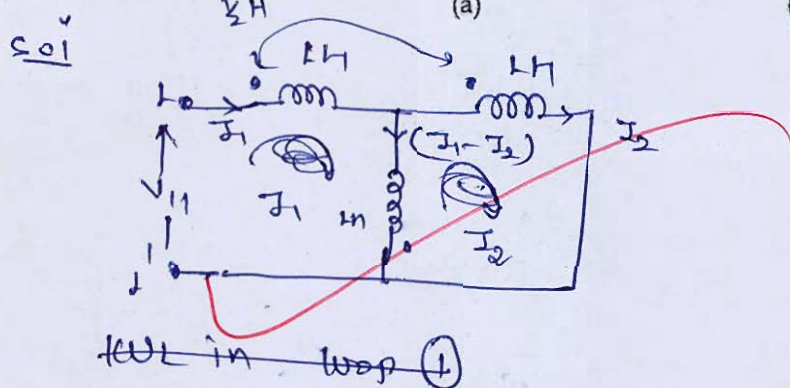 ½H (a)
Soln
1H 1H
1
I₁ (I₁-I₂) I₂
V₁₁ I₁ 1H I₂
1'
KVL in loop ①